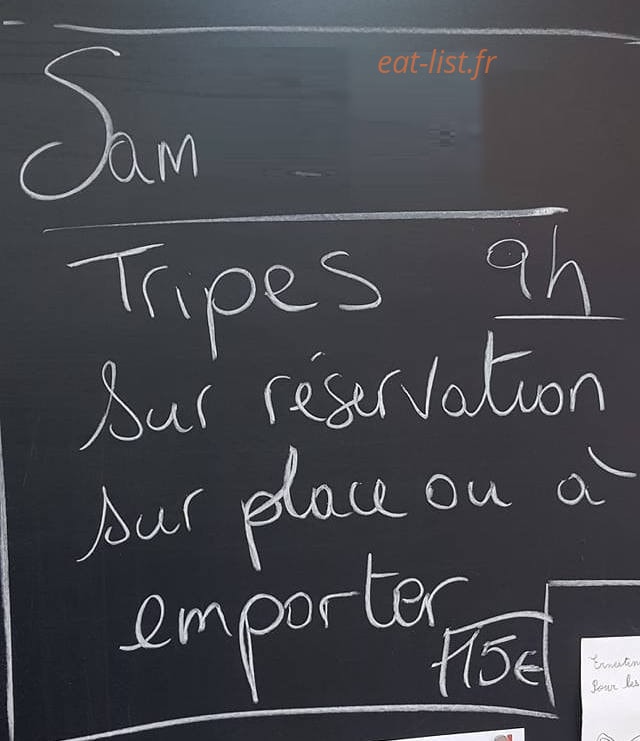 eat-list.fr
Sam
Tripes 9h
sur réservation
sur place ou à
emporter
15€